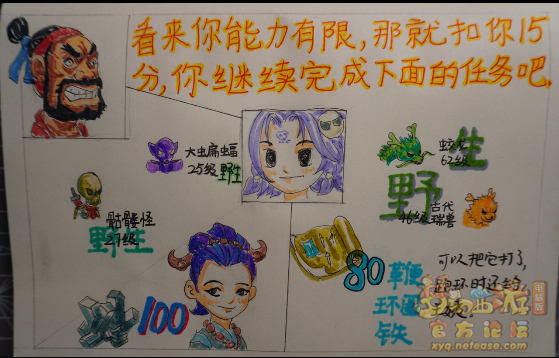 看来你能力有限，那就扣你15
分，你继续完成下面的任务吧.
大虫扁蝠
25级野生
骷髅怪
29级
野生
100
蛟龙
62级
野生
古代
46级瑞兽
80
鞭
环圆
铁
可以把它打了,
西游
电脑版
官方论坛
xyq.netease.com